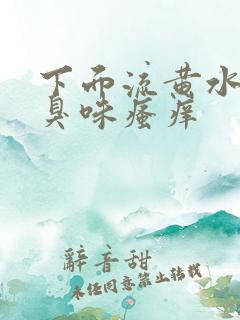 下而流黄水
臭味瘙痒
辭音甜
未经同意禁止转载